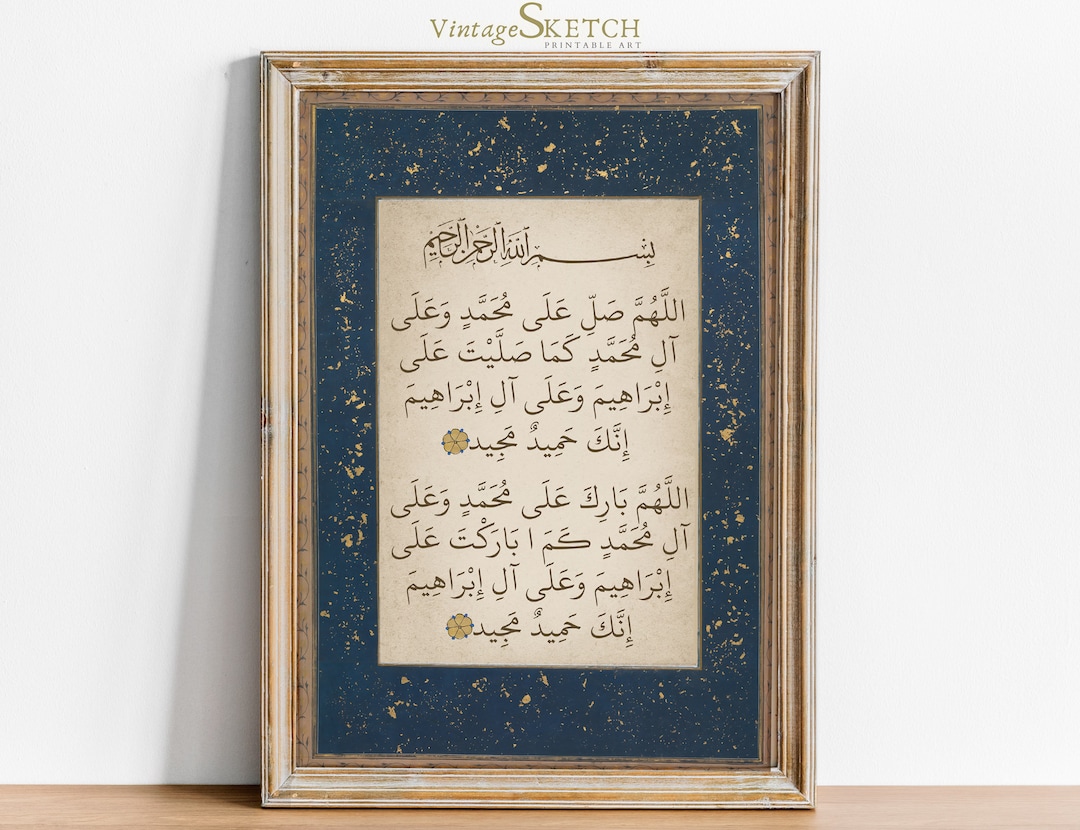 VintageSKETCH
PRINTABLE ART
بِسْمِ ٱللَّهِ ٱلرَّحْمَٰنِ ٱلرَّحِيمِ
اللَّهُمَّ صَلِّ عَلَى مُحَمَّدٍ وَعَلَى
آلِ مُحَمَّدٍ كَمَا صَلَّيْتَ عَلَى
إِبْرَاهِيمَ وَعَلَى آلِ إِبْرَاهِيمَ
إِنَّكَ حَمِيدٌ مَجِيد
اللَّهُمَّ بَارِكَ عَلَى مُحَمَّدٍ وَعَلَى
آلِ مُحَمَّدٍ كَمَ ا بَارَكْتَ عَلَى
إِبْرَاهِيمَ وَعَلَى آلِ إِبْرَاهِيمَ
إِنَّكَ حَمِيدٌ مَجِيد